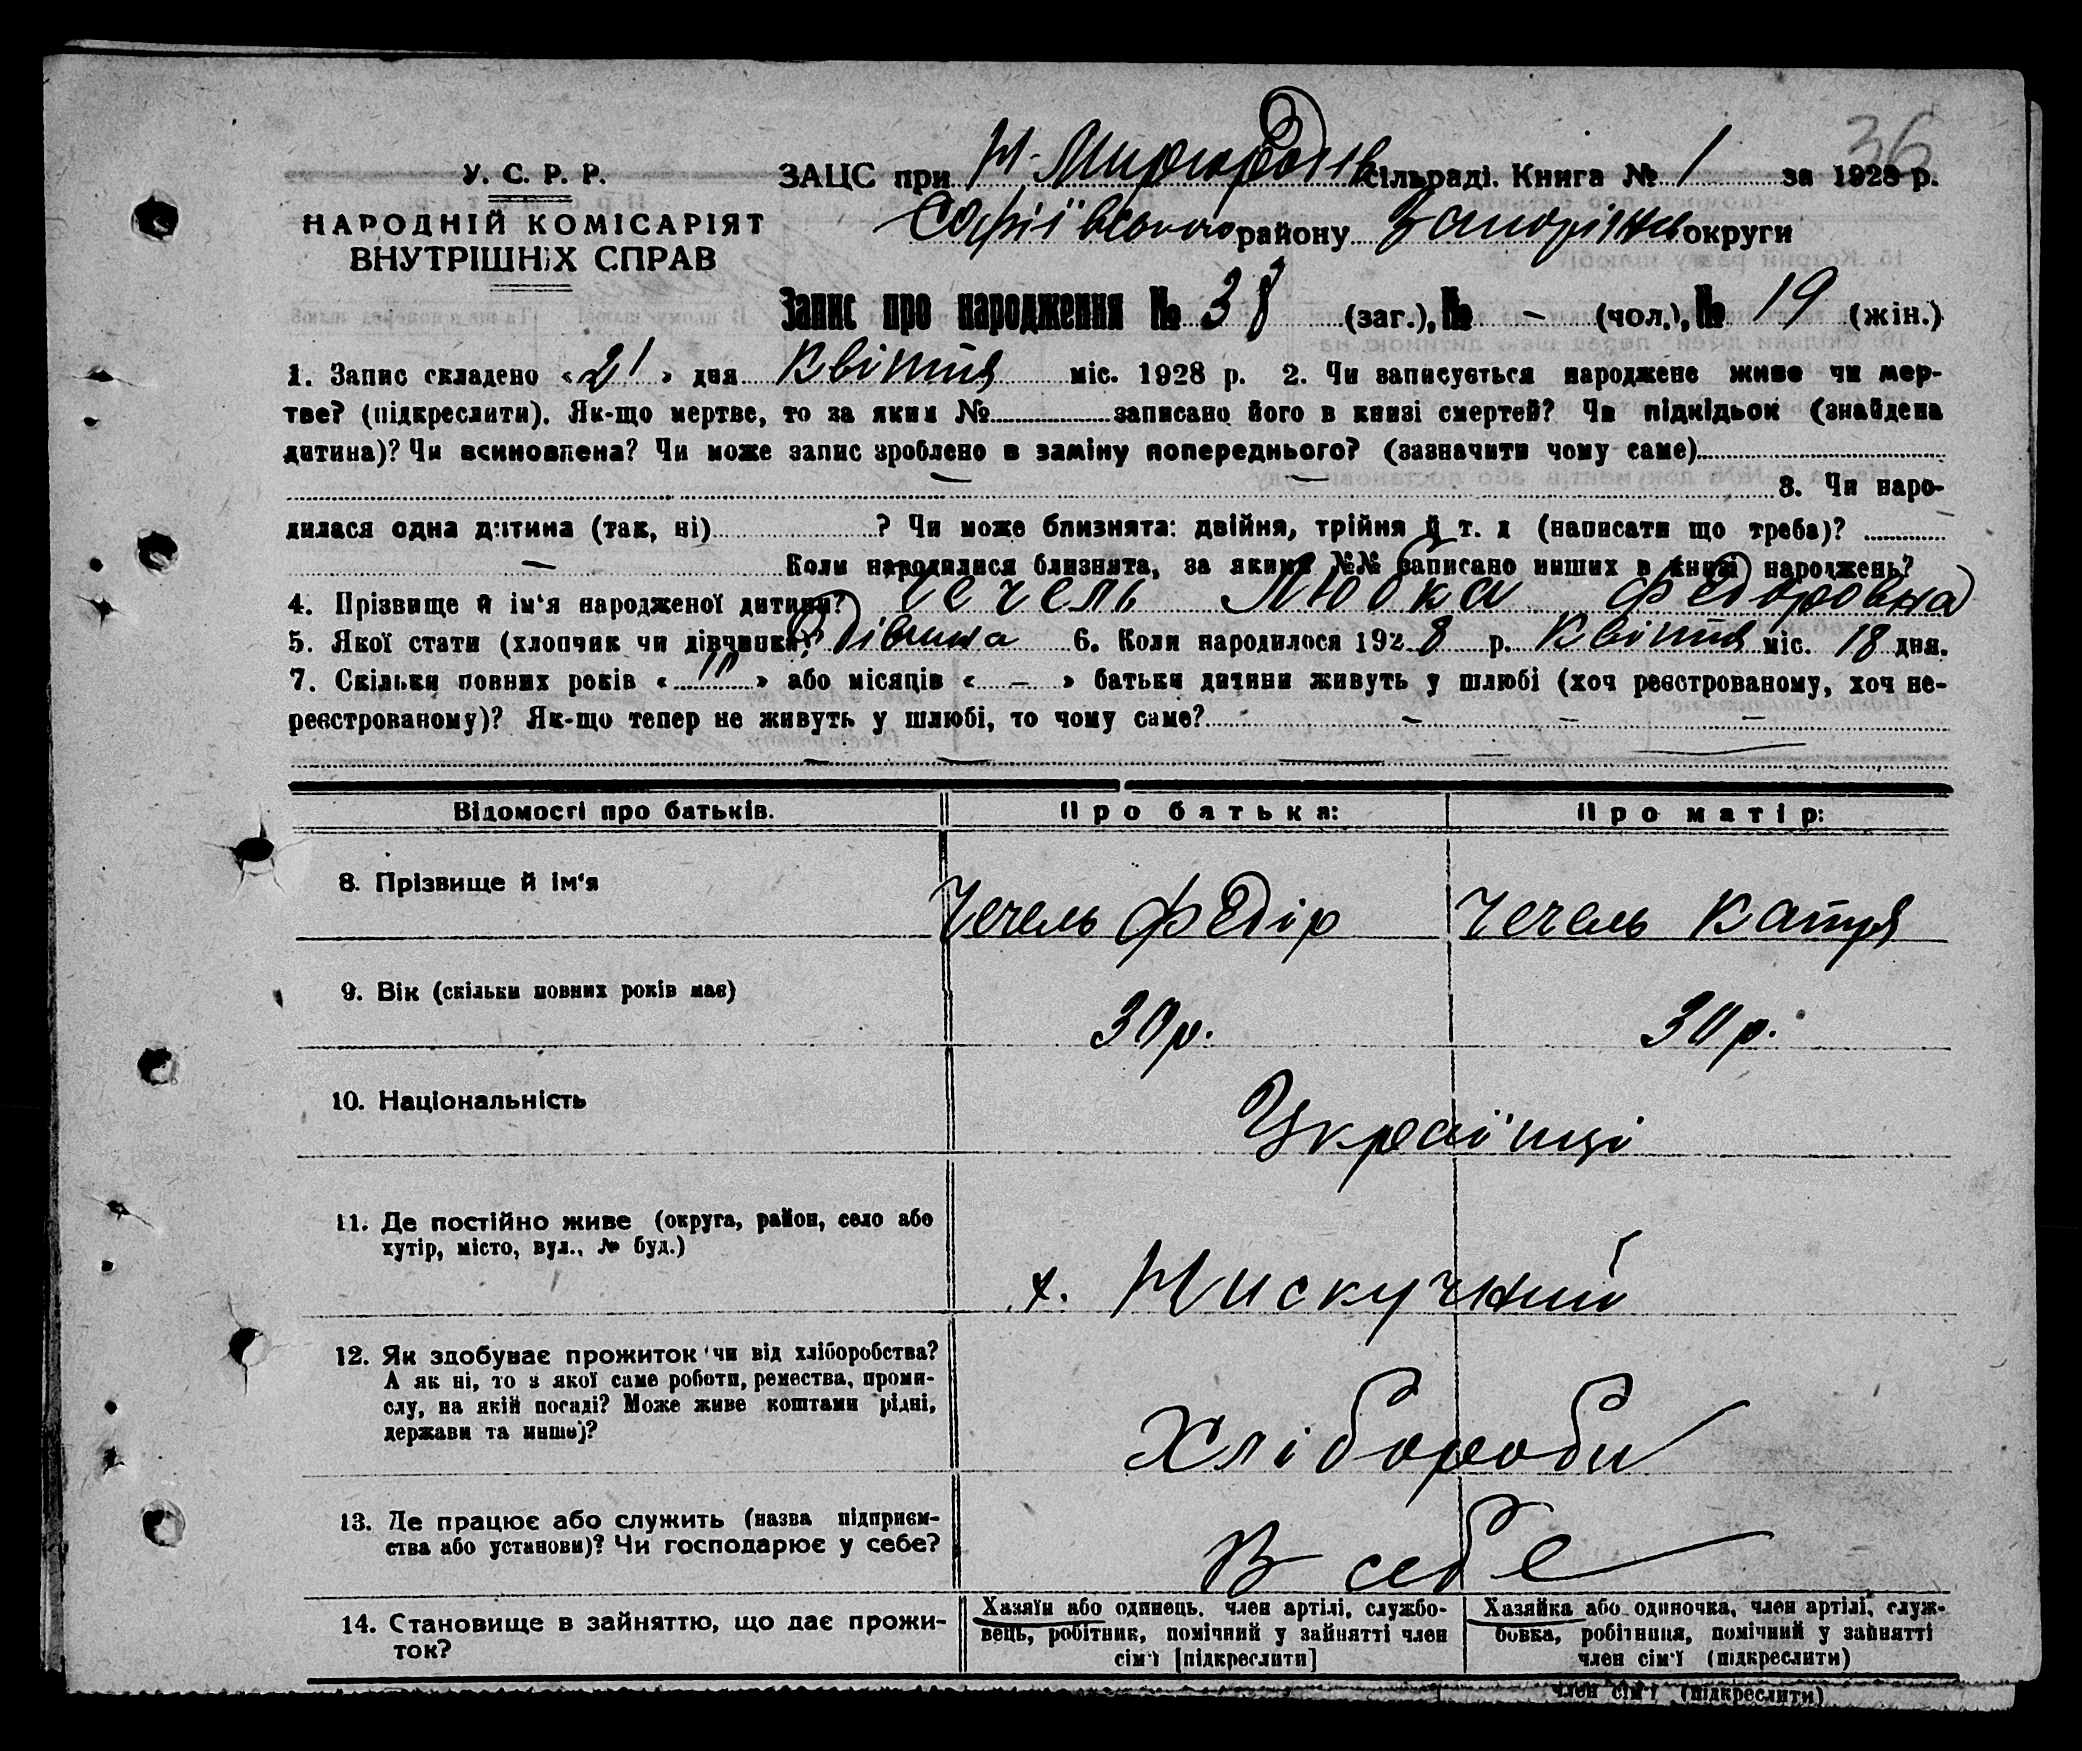 36
У. С. Р. Р.
НАРОДНІЙ КОМІСАРІЯТ
ВНУТРІШНІХ СПРАВ
ЗАЦС при Н-Миргородськ сільраді. Книга № 1 за 1928 р.
Софіївського району Запоріжськ округи
Запис про народження № 38 (заг.), № – (чол.), № 19 (жін.)
1. Запис складено «21» дня Квітня міс. 1928 р. 2. Чи записується народжене живе чи мер-
тве? (підкреслити). Як-що мертве, то за яким № записано його в книзі смертей? Чи підкідьок (знайдена
дитина)? Чи всиновлена? Чи може запис зроблено в заміну попереднього? (зазначити чому саме)
– – 3. Чи наро-
дилася одна дитина (так, ні) ? Чи може близнята: двійня, трійня й т. д (написати що треба)?
– Коли народилися близнята, за якими №№ записано инших в книзі народжень?
4. Прізвище й ім'я народженої дитини? Чечель Любка Федоровна
5. Якої стати (хлопчик чи дівчинка)? Дівчина 6. Коли народилося 1928 р. Квітня міс. 18 дня.
7. Скільки повних років «10» або місяців « – » батьки дитини живуть у шлюбі (хоч реєстрованому, хоч не-
реєстрованому)? Як-що тепер не живуть у шлюбі, то чому саме? – – –
– – –
Відомості про батьків. Про батька: Про матір:
8. Прізвище й ім'я Чечель Федір Чечель Катря
9. Вік (скільки повних років має) 30 р. 30 р.
10. Національність Українці
11. Де постійно живе (округа, район, село або
хутір, місто, вул., № буд.) х. Нискучний
12. Як здобуває прожиток чи від хліборобства?
А як ні, то з якої саме роботи, ремества, проми-
слу, на якій посаді? Може живе коштами рідні,
держави та инше)? Хлібороби
13. Де працює або служить (назва підприєм-
ства або установи)? Чи господарює у себе? В себе
14. Становище в зайняттю, що дає прожи-
ток?
Хазяїн або одинець, член артілі, службо-
вець, робітник, помічний у зайнятті член
сім'ї [підкреслити]
Хазяйка або одиночка, член артілі, служ-
бовка, робітниця, помічний у зайнятті
член сім'ї (підкреслити)
член сім'ї (підкреслити)